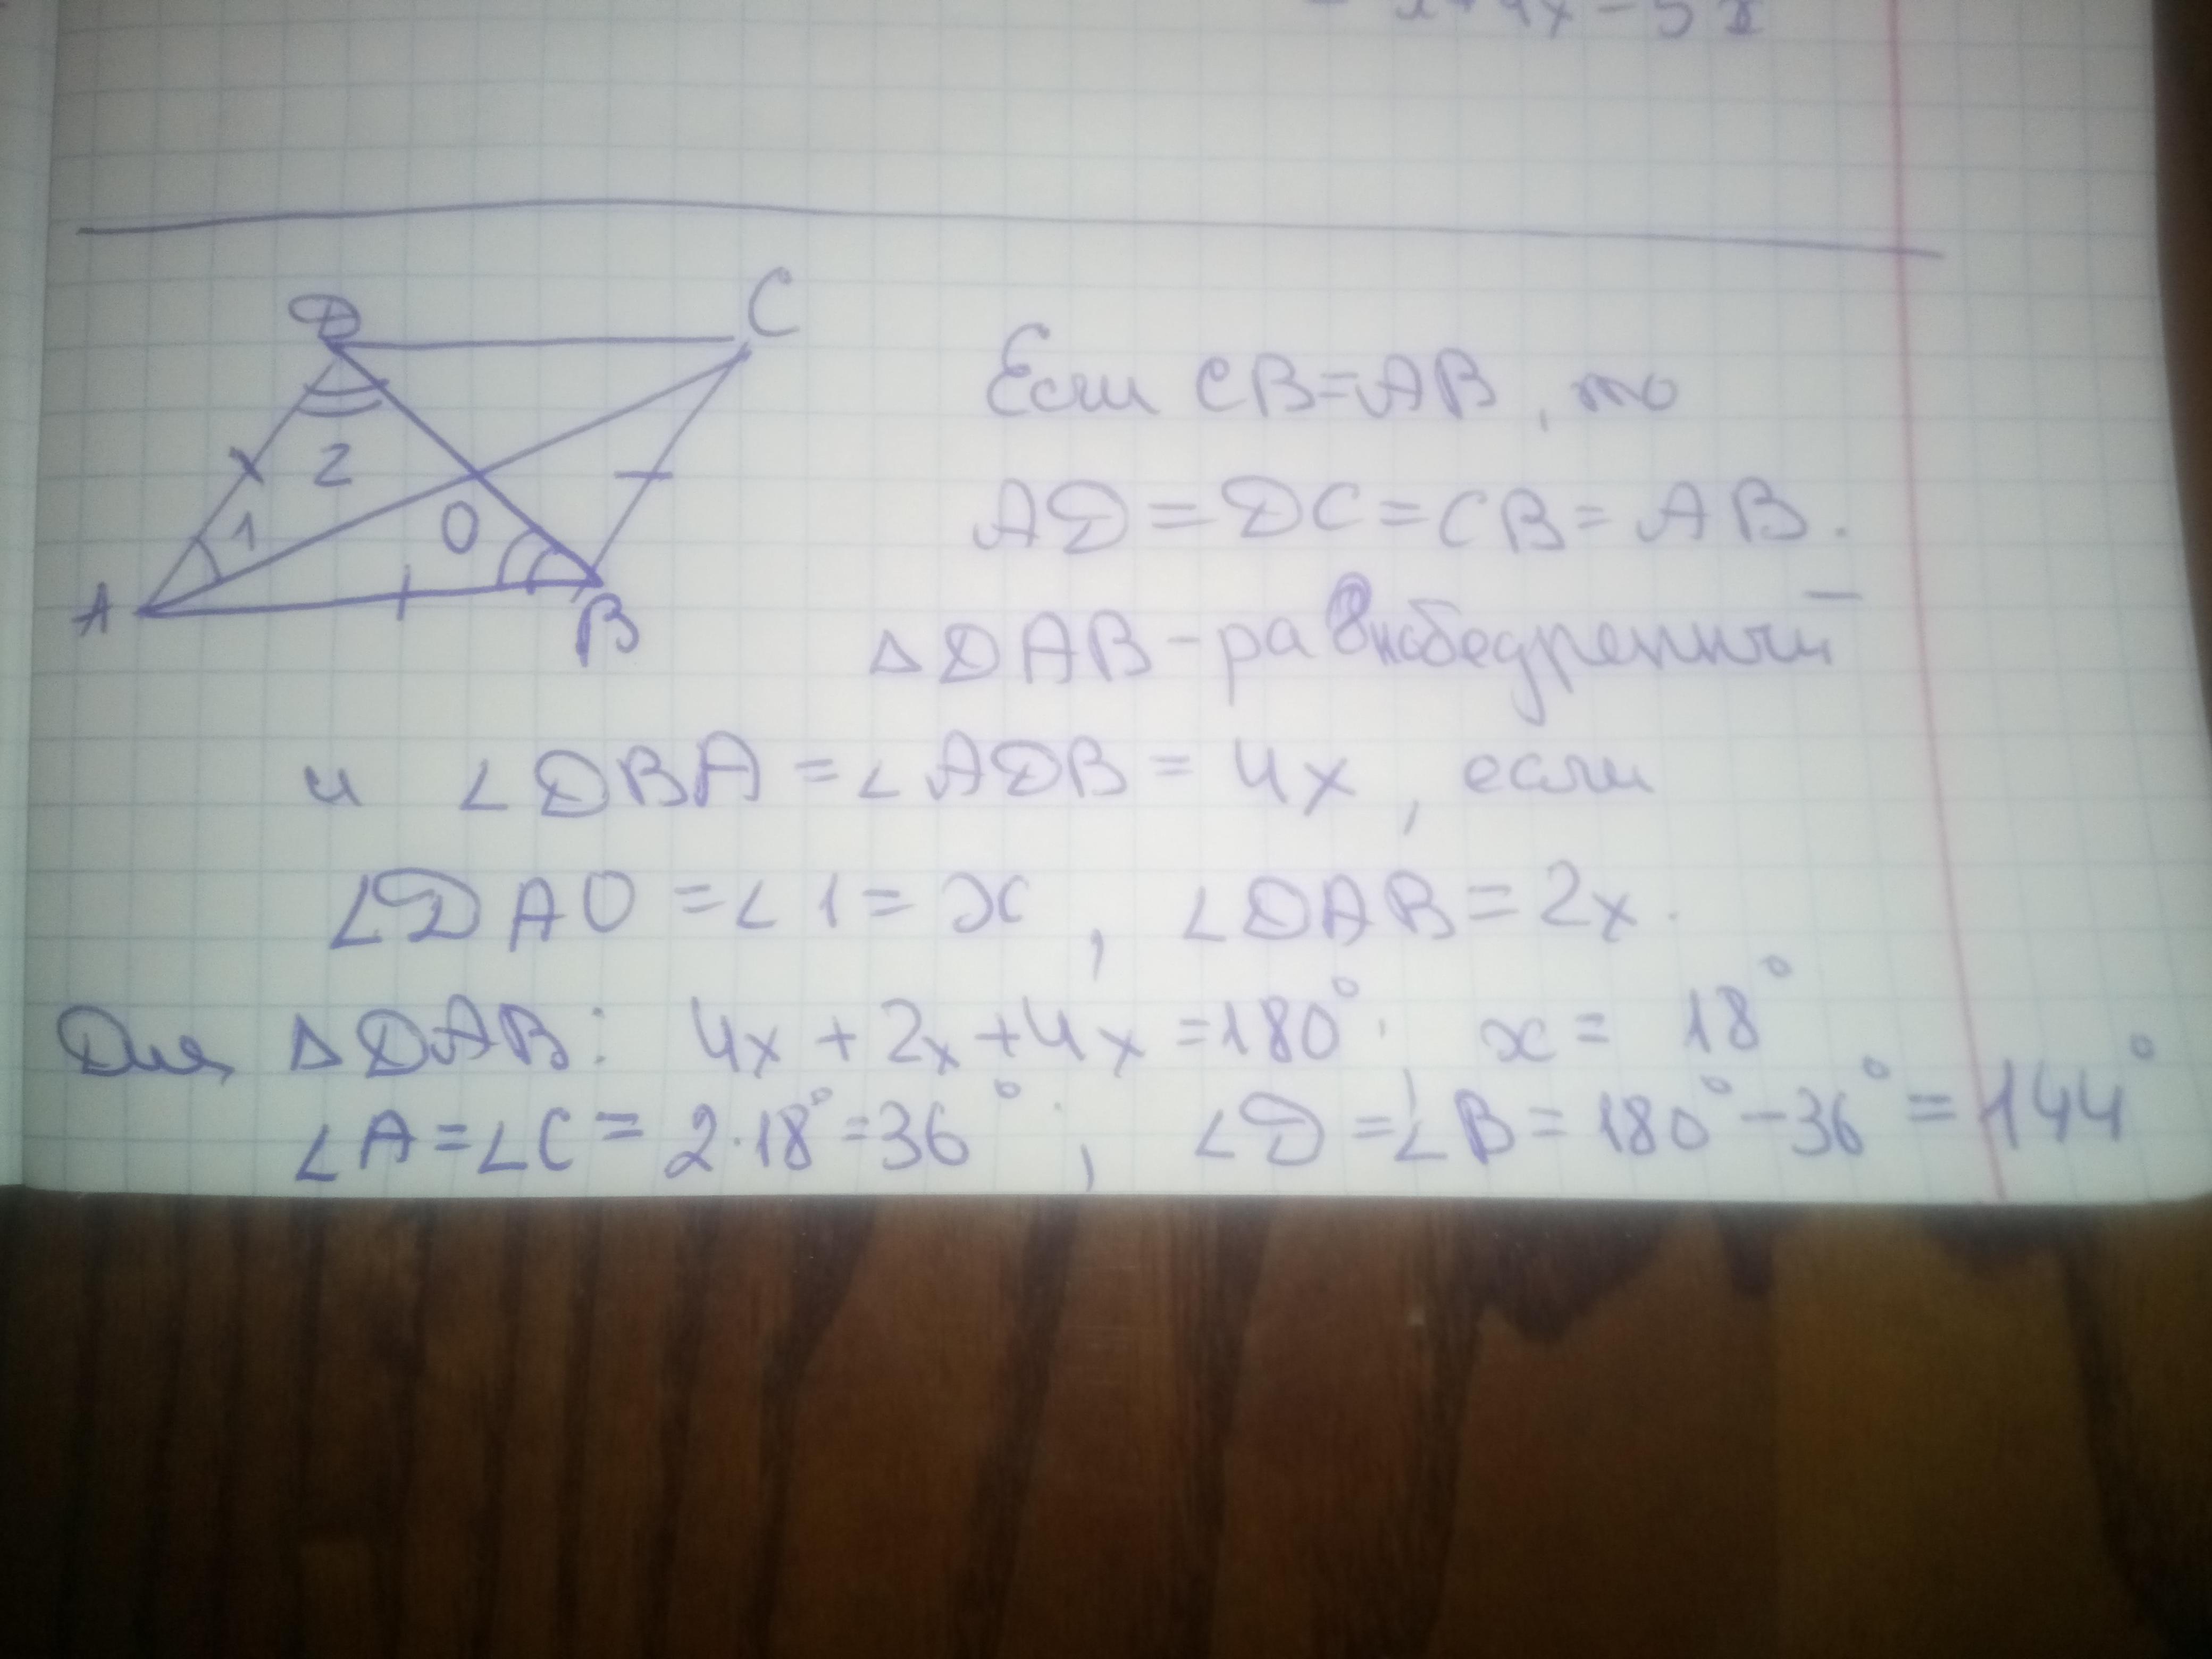 D
C
2
1
O
A
B
Если CB=AB, то
AD=DC=CB=AB.
△DAB-равнобедренный
и ∠DBA=∠ADB=4x, если
∠DAO=∠1=x, ∠DAB=2x.
Для △DAB: 4x+2x+4x=180°. x=18°
∠A=∠C=2·18°=36°, ∠D=∠B=180°-36°=144°